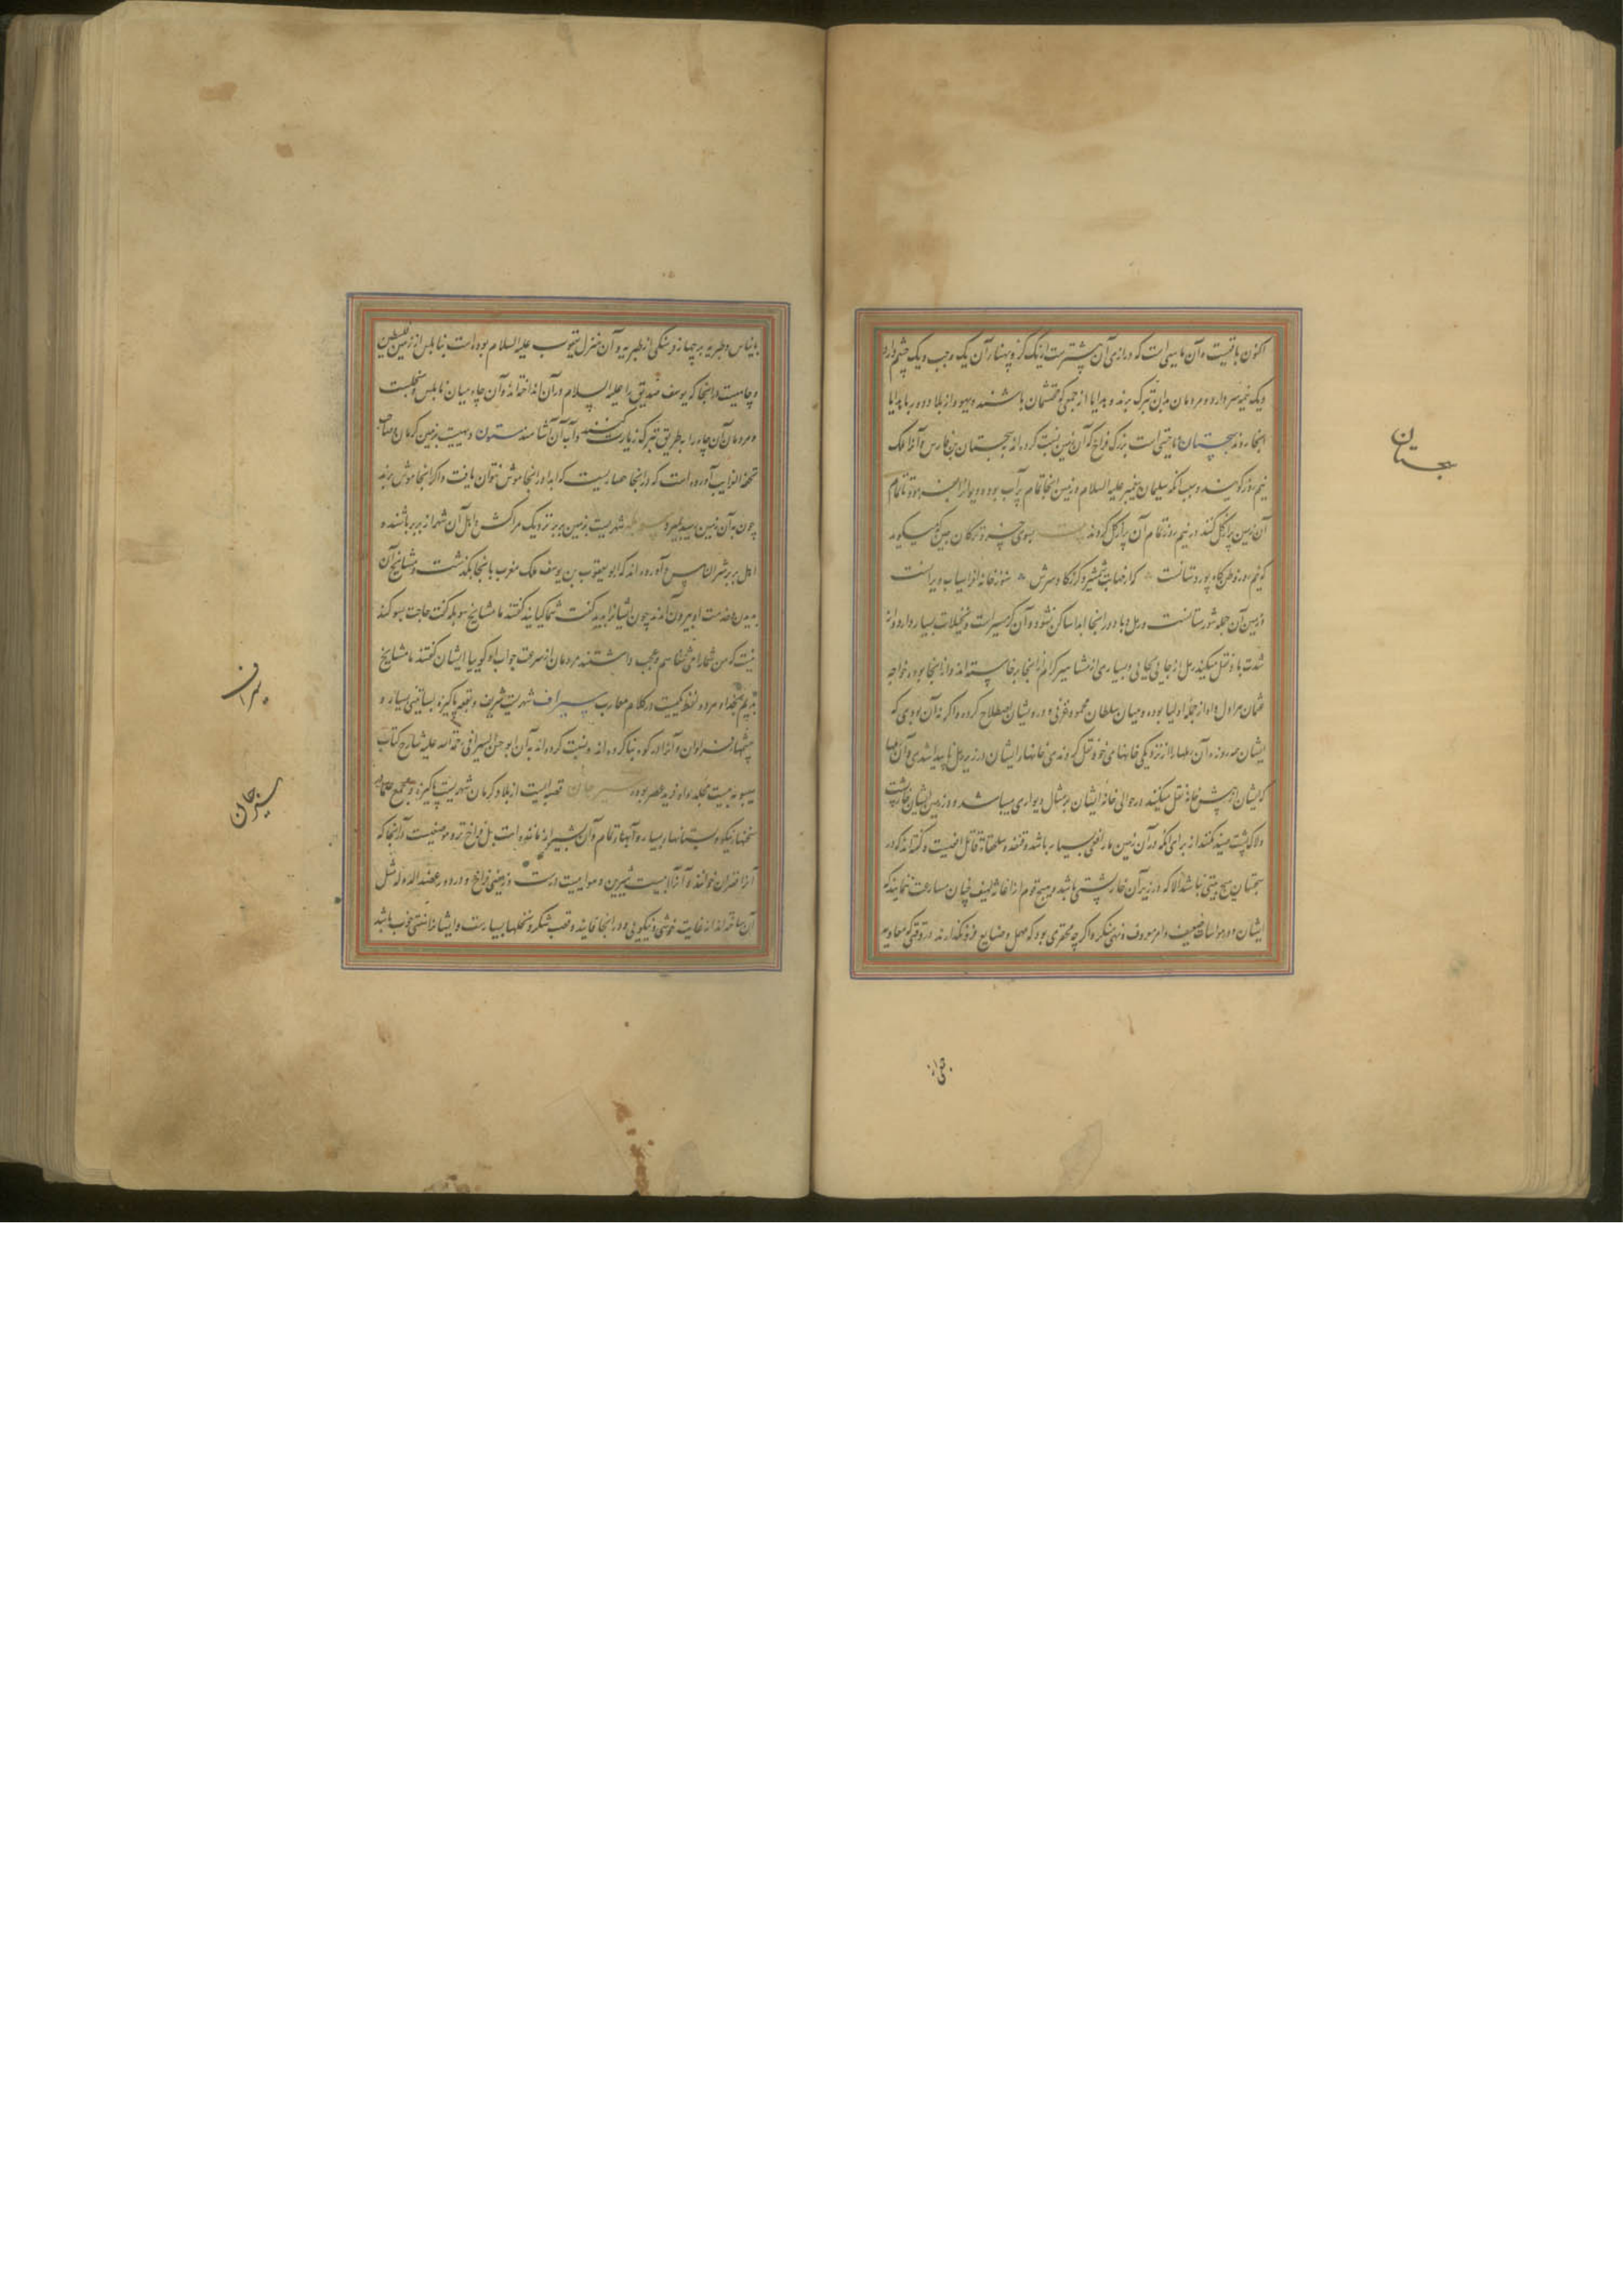 اکنون باقیست و آن ماهیی است که درازی آن بیشترست از یک گز و پهنای آن یک وجب و یک چشم دارد
و یک نیمه سر دارد و مردمان بدان تبرک برند و بدایا از
اینجا روند سجستان ناحیتی است بزرگ فراخ که آن زمین نسبت کرده اند بسجستان بن فارس و آنرا ملک
نیمروز گویند و سبب آنکه سلیمان پیغمبر علیه السلام زمین اینجا تمام پر آب بوده دیوانرا فرمود تا تمام
آن زمین پر از گل کنند در نیم روز تمام آن پر از گل کردند بسوی خسرو ترکان چین میگوید
که نیمروز وطن گاه پور دستانست که از ضیاءت شمشیر و گرز گاو سرش هنوز خانه افراسیاب ویرانست
زمین آن جمله شورستانست و ریل و باد در اینجا ابدا ساکن نشود و آن گرمسیر است و نخیلات بسیار دارد و از
شدت باد نقل میکند رمل از جایی بجایی و بسیاری از مشاهیر کرام از اینجا برخاسته اند و از اینجا بوده خواجه
عثمان مراول و او از جمله اولیا بوده و میان سلطان محمود غزنی و درویشان اصطلاح کرده و اگر نه آن بودی که
ایشان هر روزه آن رملها را از نزدیکی خانهای خود نقل کردندی خانها ایشان در زیر رمل ناپیدا شدی و آن رملها
که ایشان از پیش خانه نقل میکنند در حوالی خانه ایشان بر مثال دیواری میباشد و در زمین ایشان خارپشت
و لاک پشت صید نکنند از برای آنکه در آن زمین مار افعی بسیار باشد و قنفذ و سلحفاة قاتل افعیست و گفته اند که در
سجستان هیچ بیتی نباشد الا که در زیر آن خارپشتی باشد و هیچ قوم از اغاثه لهیف چنان مسارعت ننمایند که
ایشان و در مواسات ضعیف و امر معروف و نهی منکر و اگر چه محقری بود که مهمل و ضایع فرو نگذارند در وقتی که معاویه
سجستان
بانیاس و طبریه بر چهار فرسنگی از طبریه و آن منزل یعقوب علیه السلام بوده است بنابلس از زمین فلسطین
و چاهیست در اینجا که یوسف صدیق را علیه السلام در آن انداختند و آن چاه میان نابلس و سنجلست
و مردمان آن چاه را بطریق تبرک زیارت کنند و آب آن آشامند سنون دهیست بزمین کرمان صاحب
تحفة الغرایب آورده است که در اینجا حصاریست که ابدا در اینجا موش نتوان یافت و اگر اینجا موش برند
چون به آن زمین رسد بمیرد شهریست بزمین بربر نزدیک مراکش و اهل آن شهر از بربر باشند و
اهل بربر آورده اند که ابو یعقوب بن یوسف ملک مغرب باینجا بگذشت و مشایخ آن
بدیدن خدمت او بیرون آمدند چون ایشانرا بدید گفت شما کیانید گفتند ما مشایخ گفت حاجت بسوگند
نیست که من شما را می شناسم و عجب داشتند مردمان از سرعت جواب او گوییا ایشان گفتند ما مشایخ
سیراف شهریست شریف و بقعه پاکیزه بساتینی بسیار و
چشمها فراوان و آنرا در کوه بنا کرده اند و نسبت کرده اند به آن ابو حسن السیرافی رحمة الله علیه شارح کتاب
سیبویه بیست مجلد و او فرید عصر بوده سیرجان قصبه ایست از بلاد کرمان شهریست پاکیزه و مجمع علما
سخنها نیکو و بستانها بسیار و آبها تمام و آن بشیراز مانده است بل فراختر و موضعیست در آنجا که
آنرا خوانند و آنرا آبیست شیرین و هواییست درست و زمینی فراخ و در دور عضد الدوله مثل
آن ساخته اند از غایت خوشی و نیکویی و در اینجا فانیذ و قصب شکر و نخلها بسیارست و ایشانرا سنتی خوب باشد
سیراف
سیرجان